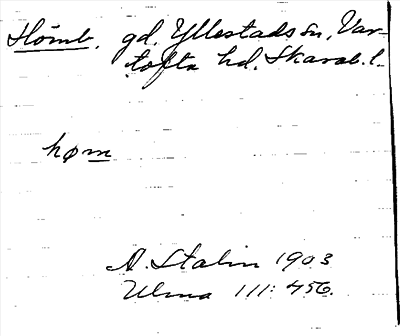 Hömb. gd. Yllestads sn, Var-
tofta hd. Skarab. l.
høm
A. Stalin 1903
Ulma 111: 456.